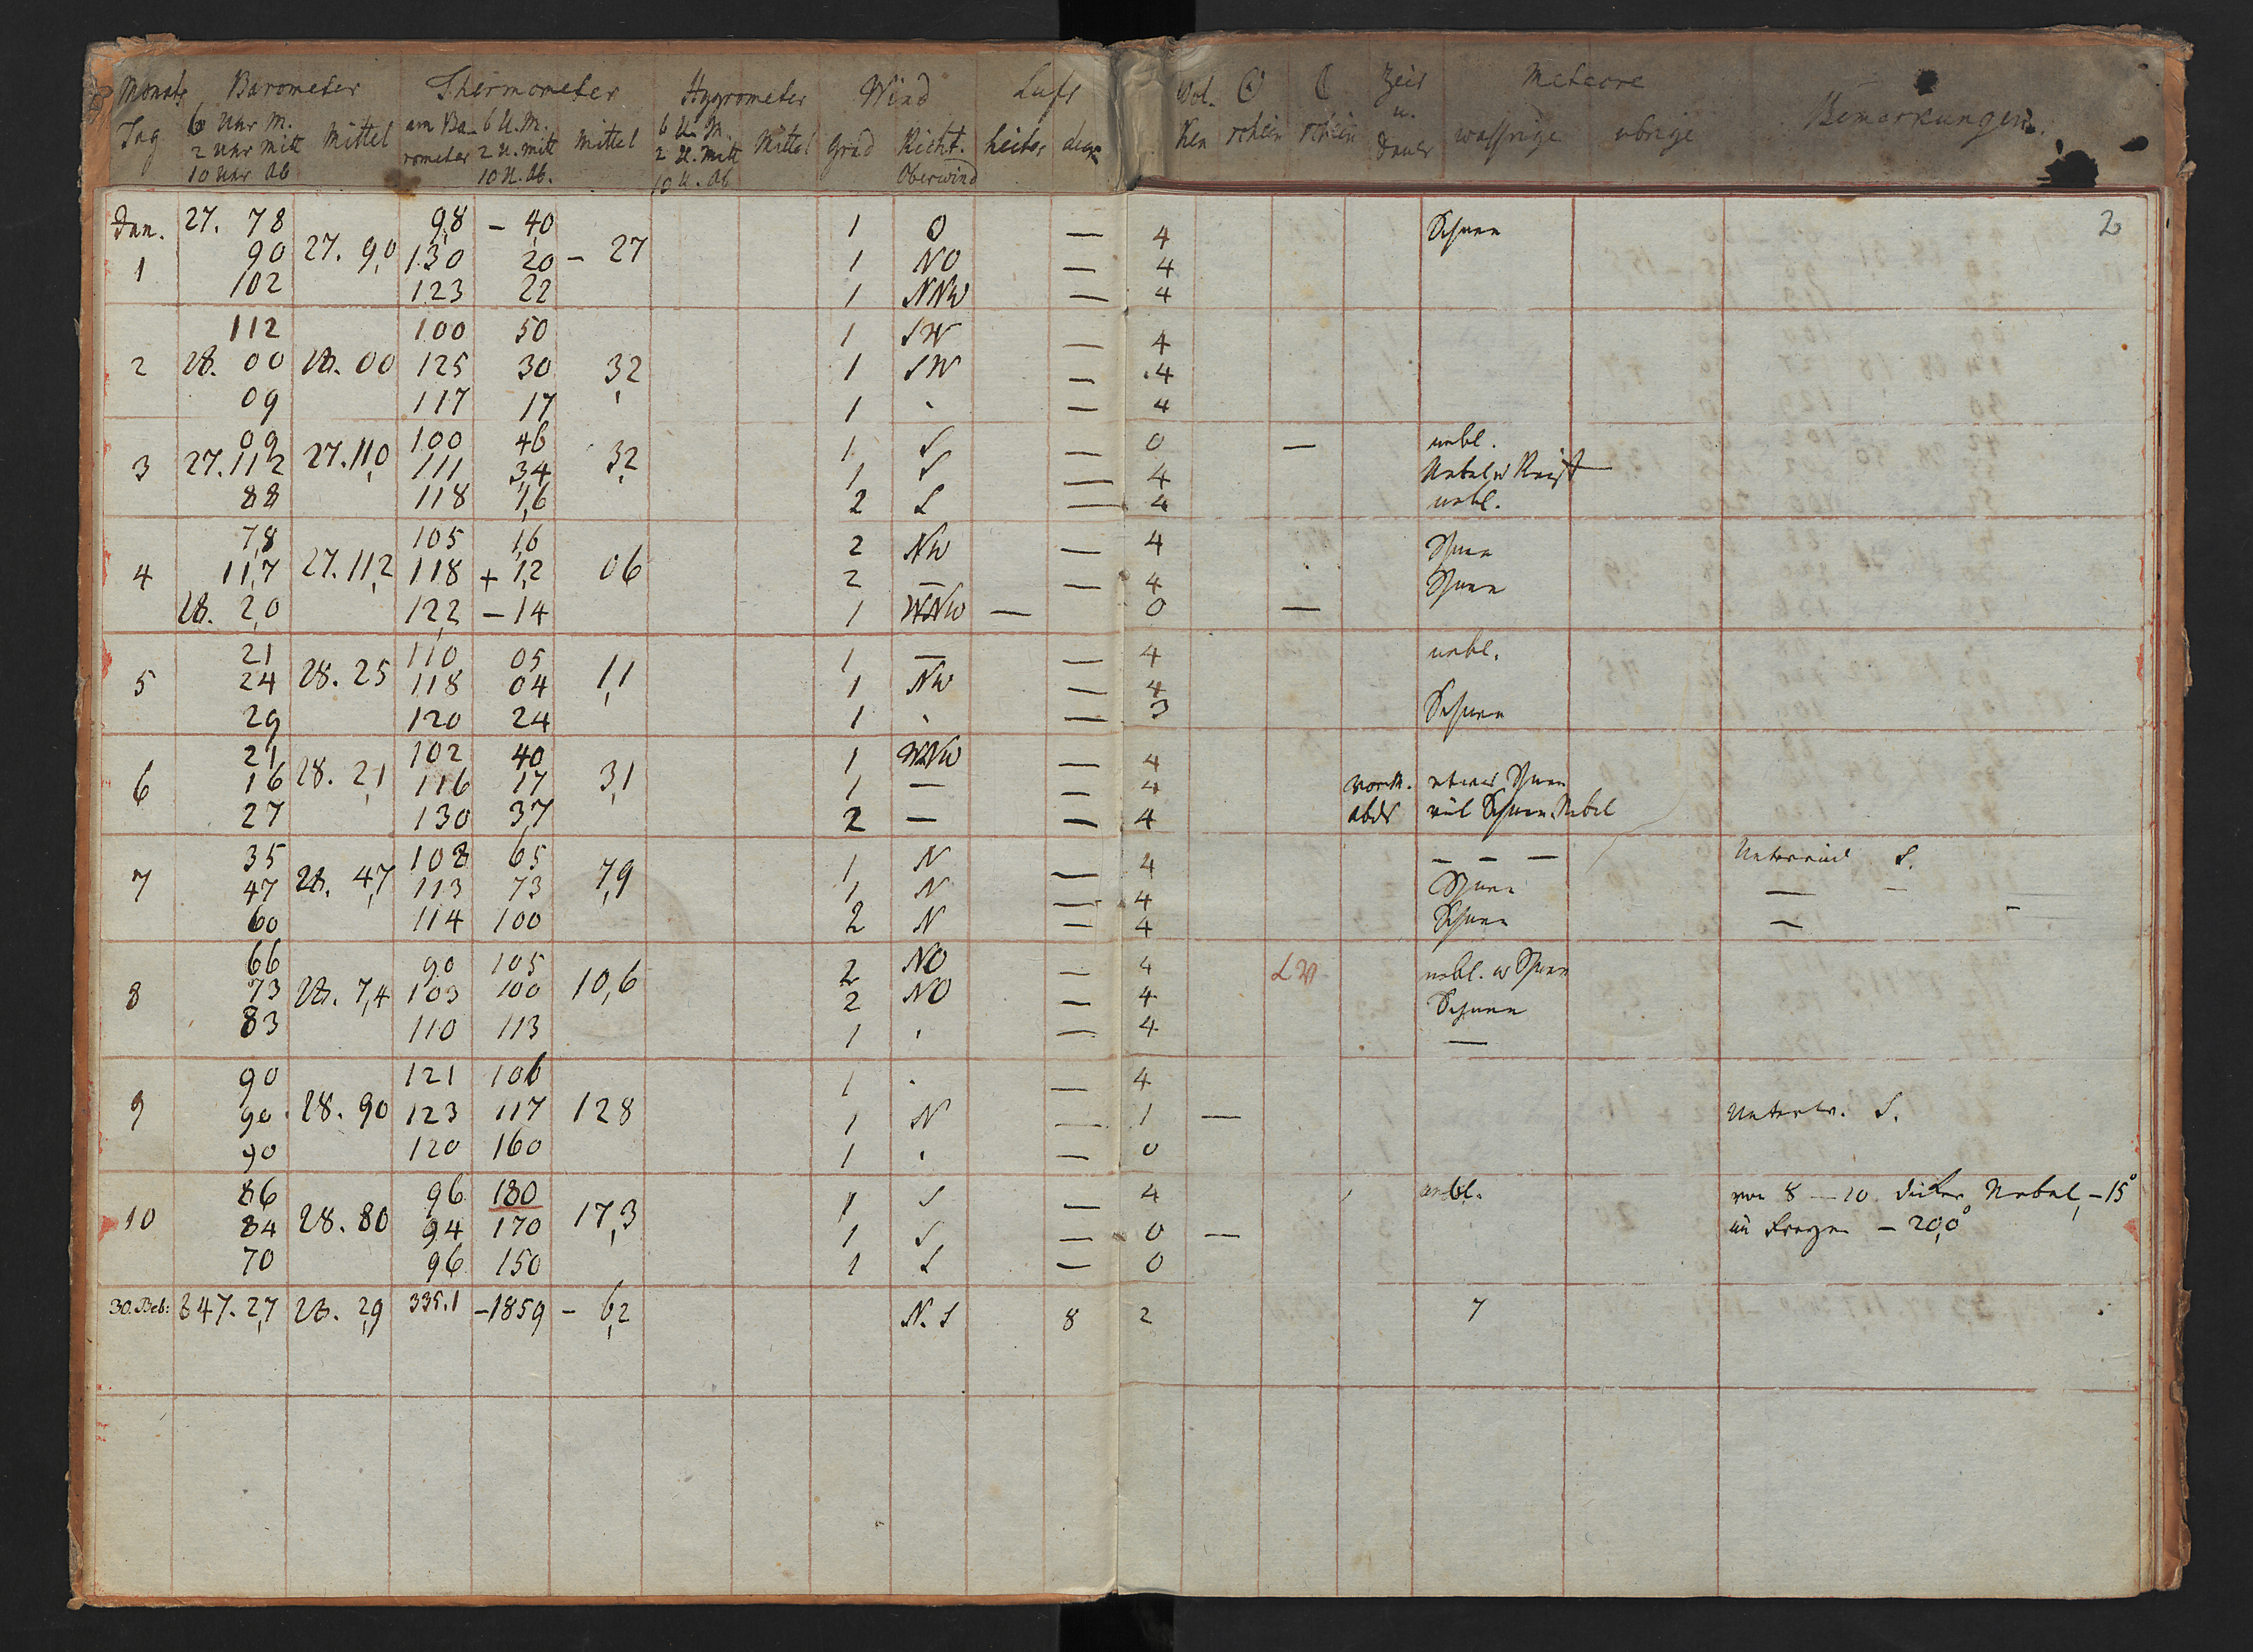 Monats Barometer Thermometer Hygrometer Wind Luft Wol- ☉ ☾ Zeit Meteore
Tag 6 Uhr M. Mittel am Ba- 6 U. M. Mittel 6 U. M. Mittel Grad Richt. heiter ken schein schein u. wassrige ubrige Bemerkungen.
2 Uhr Mitt rometer 2 U. Mitt 2 U. Mitt Dauer
10 Uhr Ab 10 U. Ab. 10 U. Ab Oberwind
2
Jan. 27. 78 9,8 – 4,0 1 O — 4 Schnee
1 90 27. 9,0 130 20 – 27 1 NO — 4
102 123 22 1 NNW — 4
112 100 50 1 SW — 4
2 28. 00 28. 00 125 30 3,2 1 SW — 4
09 117 17 1 . — 4
09 100 46 1 S — 0 — nebl.
3 27. 112 27. 11,0 111 3,4 3,2 1 S — 4 Nebel u Reif
88 118 1,6 2 S — 4 nebl.
7,8 105 1,6 2 NW — 4 Schnee
4 11,7 27. 11,2 118 + 1,2 06 2 — — 4 Schnee
28. 2,0 12,2 – 14 1 WNW — 0 —
21 110 05 1 — — 4 nebl.
5 24 28. 25 118 04 1,1 1 NW — 4
29 120 24 1 . — 3 Schnee
21 102 40 1 WNW — 4
6 16 28. 2,1 116 17 3,1 1 — — 4 vorm. etwas Schnee
27 130 3,7 2 — — 4 abds viel Schnee Nebel
35 108 65 1 N — 4 — — — Unterwind S.
7 47 28. 4,7 113 73 7,9 1 N — 4 Schnee — —
60 114 100 2 N — 4 Schnee — –
66 90 105 2 NO — 4 LV nebl. u Schnee
8 73 28. 7,4 103 100 10,6 2 NO — 4 Schnee
83 110 113 1 . — 4 —
90 121 106 1 . — 4
9 90. 28. 90 123 117 128 1 N — 1 — Unterw. S.
90 120 160 1 . — 0
86 96 180 1 S — 4 nebl. von 8 – 10 dicker Nebel, – 15°
10 84 28. 80 94 170 17,3 1 S — 0 — – 20,0°
70 96 150 1 S — 0
30. Beb: 847. 2,7 28. 2,9 335.1 – 1859 – 6,2 N. S 8 2 7